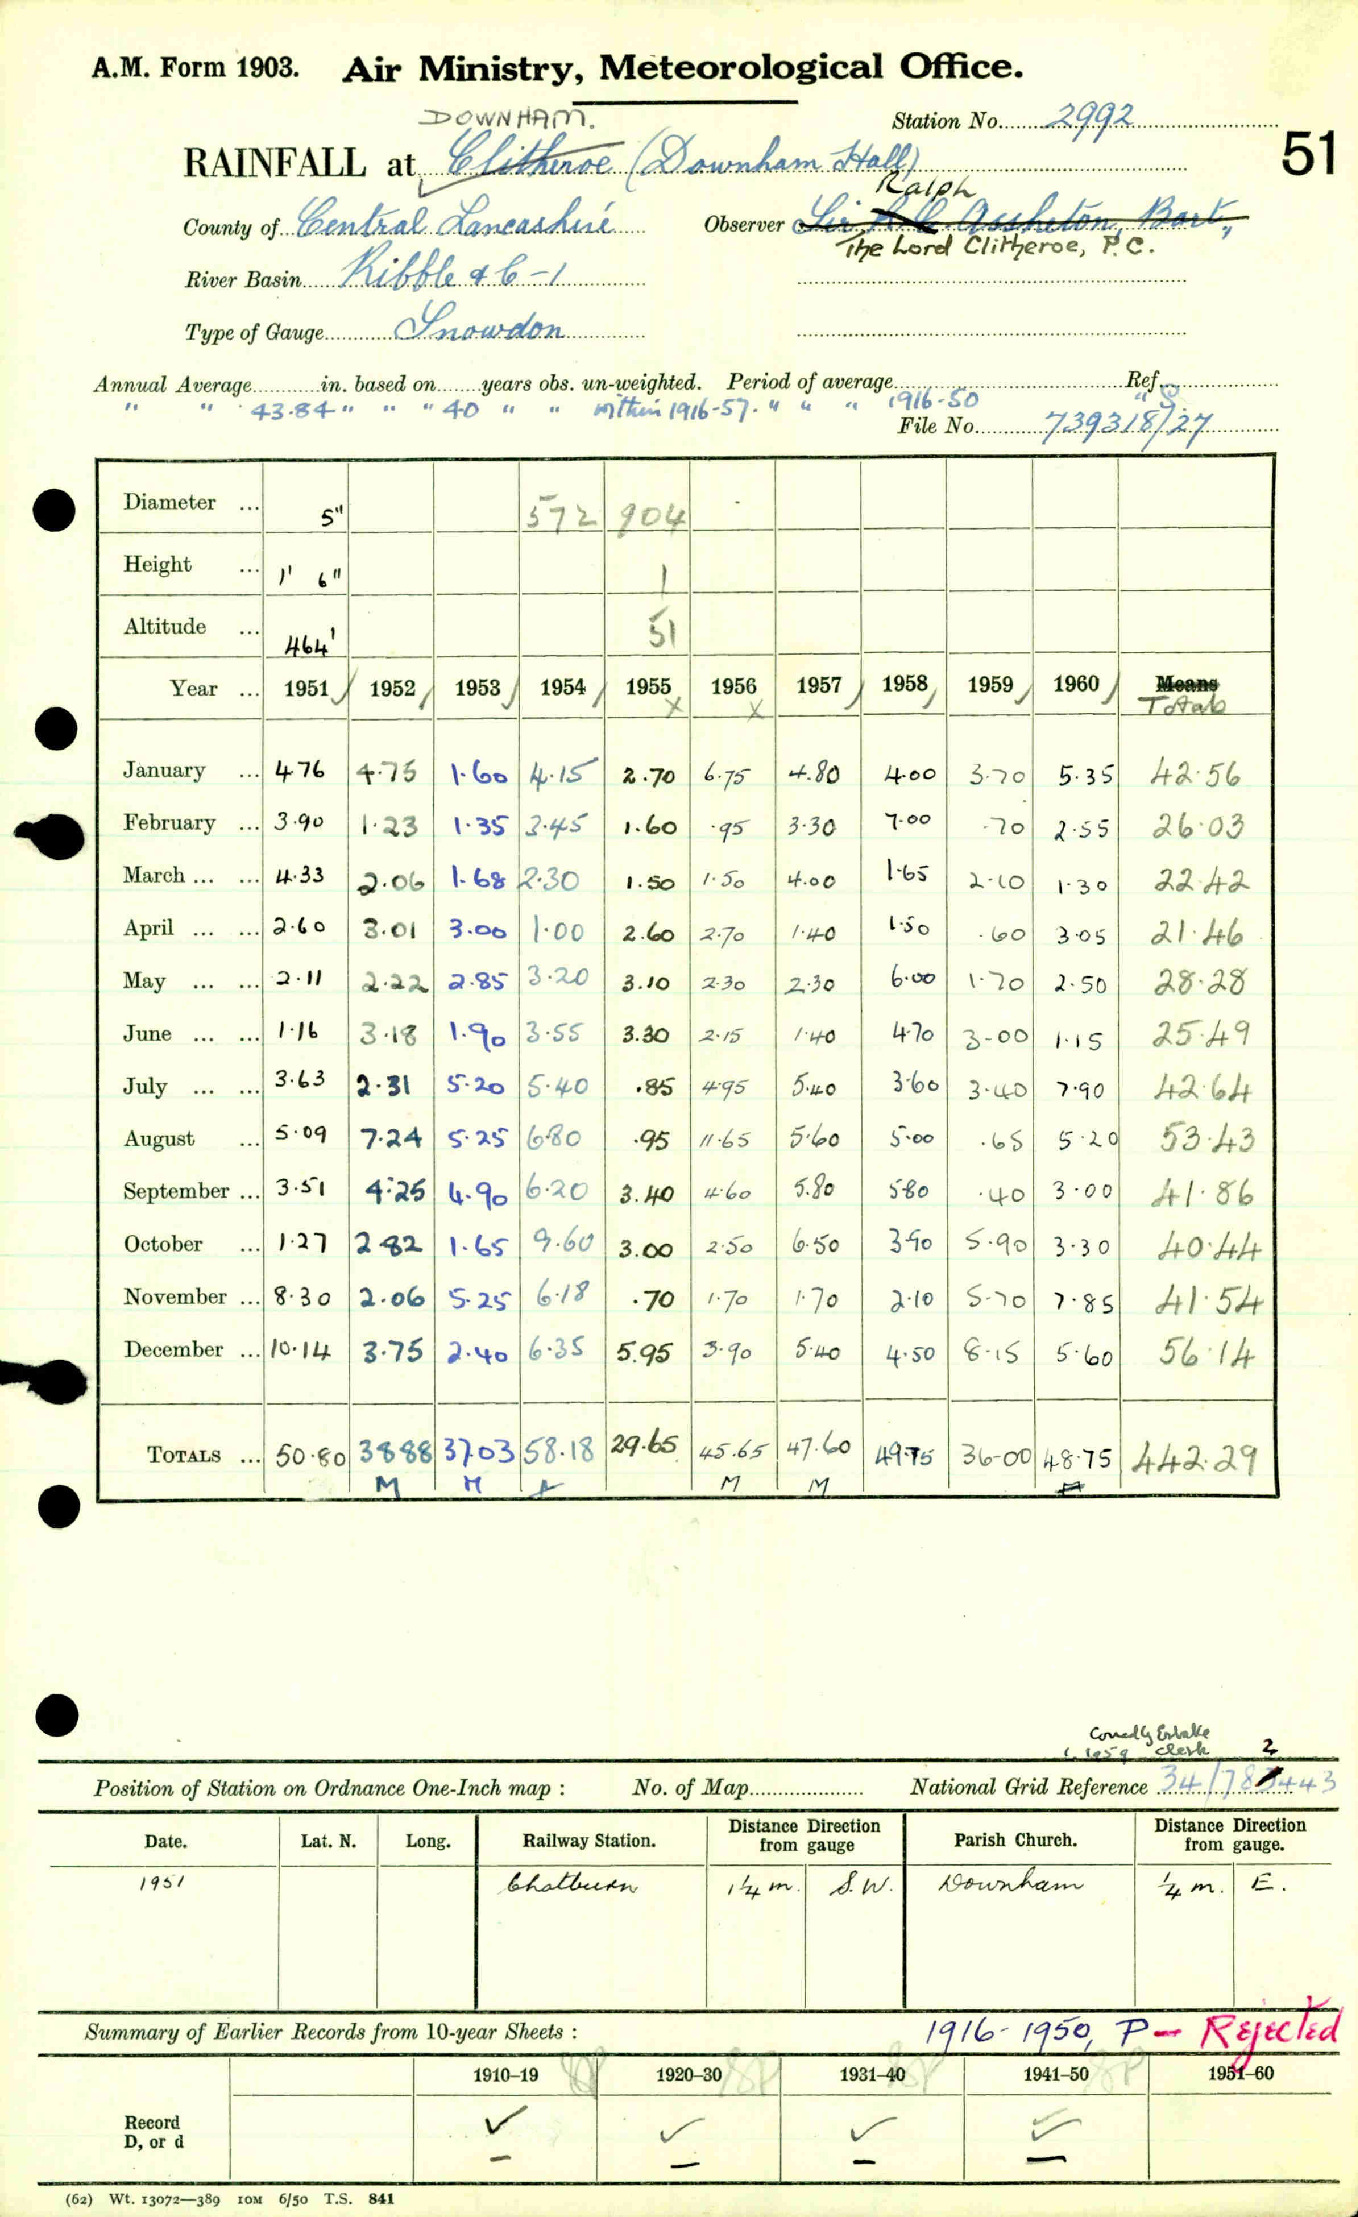 A.M. Form 1903. Air Ministry, Meteorological Office.
DOWNHAM.
Station No. 2992
51
RAINFALL at Clitheroe (Downham Hall)
Ralph
County of Central Lancashire Observer Sir R.C. Assheton, Bart.,
The Lord Clitheroe, P.C.
River Basin Ribble & C-1
Type of Gauge Snowdon
Annual Average in. based on years obs. un-weighted. Period of average Ref.
" " 43.84 " " " 40 " " within 1916-57. " " " 1916-50 " S.
File No. 739318/27
Diameter ... 5" 572 904
Height ... 1' 6" 1
Altitude ... 464' 51
Year ... 1951 1952 1953 1954 1955 1956 1957 1958 1959 1960 Means
x x Totals
January ... 4.76 4.75 1.60 4.15 2.70 6.75 4.80 4.00 3.70 5.35 42.56
February ... 3.90 1.23 1.35 3.45 1.60 .95 3.30 7.00 .70 2.55 26.03
March ... ... 4.33 2.06 1.68 2.30 1.50 1.50 4.00 1.65 2.10 1.30 22.42
April ... ... 2.60 3.01 3.00 1.00 2.60 2.70 1.40 1.50 .60 3.05 21.46
May ... ... 2.11 2.22 2.85 3.20 3.10 2.30 2.30 6.00 1.70 2.50 28.28
June ... ... 1.16 3.18 1.90 3.55 3.30 2.15 1.40 4.70 3.00 1.15 25.49
July ... ... 3.63 2.31 5.20 5.40 .85 4.95 5.40 3.60 3.40 7.90 42.64
August ... 5.09 7.24 5.25 6.80 .95 11.65 5.60 5.00 .65 5.20 53.43
September ... 3.51 4.25 4.90 6.20 3.40 4.60 5.80 5.80 .40 3.00 41.86
October ... 1.27 2.82 1.65 9.60 3.00 2.50 6.50 3.90 5.90 3.30 40.44
November ... 8.30 2.06 5.25 6.18 .70 1.70 1.70 2.10 5.70 7.85 41.54
December ... 10.14 3.75 2.40 6.35 5.95 3.90 5.40 4.50 8.15 5.60 56.14
TOTALS ... 50.80 38.88 37.03 58.18 29.65 45.65 47.60 49.75 36.00 48.75 442.29
M M M M
Estate
1959 Clerk 2
Position of Station on Ordnance One-Inch map : No. of Map National Grid Reference 34/783443
Date. Lat. N. Long. Railway Station. Distance from Direction gauge Parish Church. Distance from Direction gauge.
1951 Chatburn 1¼ m. S.W. Downham ¼ m. E.
Summary of Earlier Records from 10-year Sheets : 1916-1950, P - Rejected
1910–19 1920–30 1931–40 1941–50 1951–60
Record
D, or d
(62) Wt. 13072—389 IOM 6/50 T.S. 841